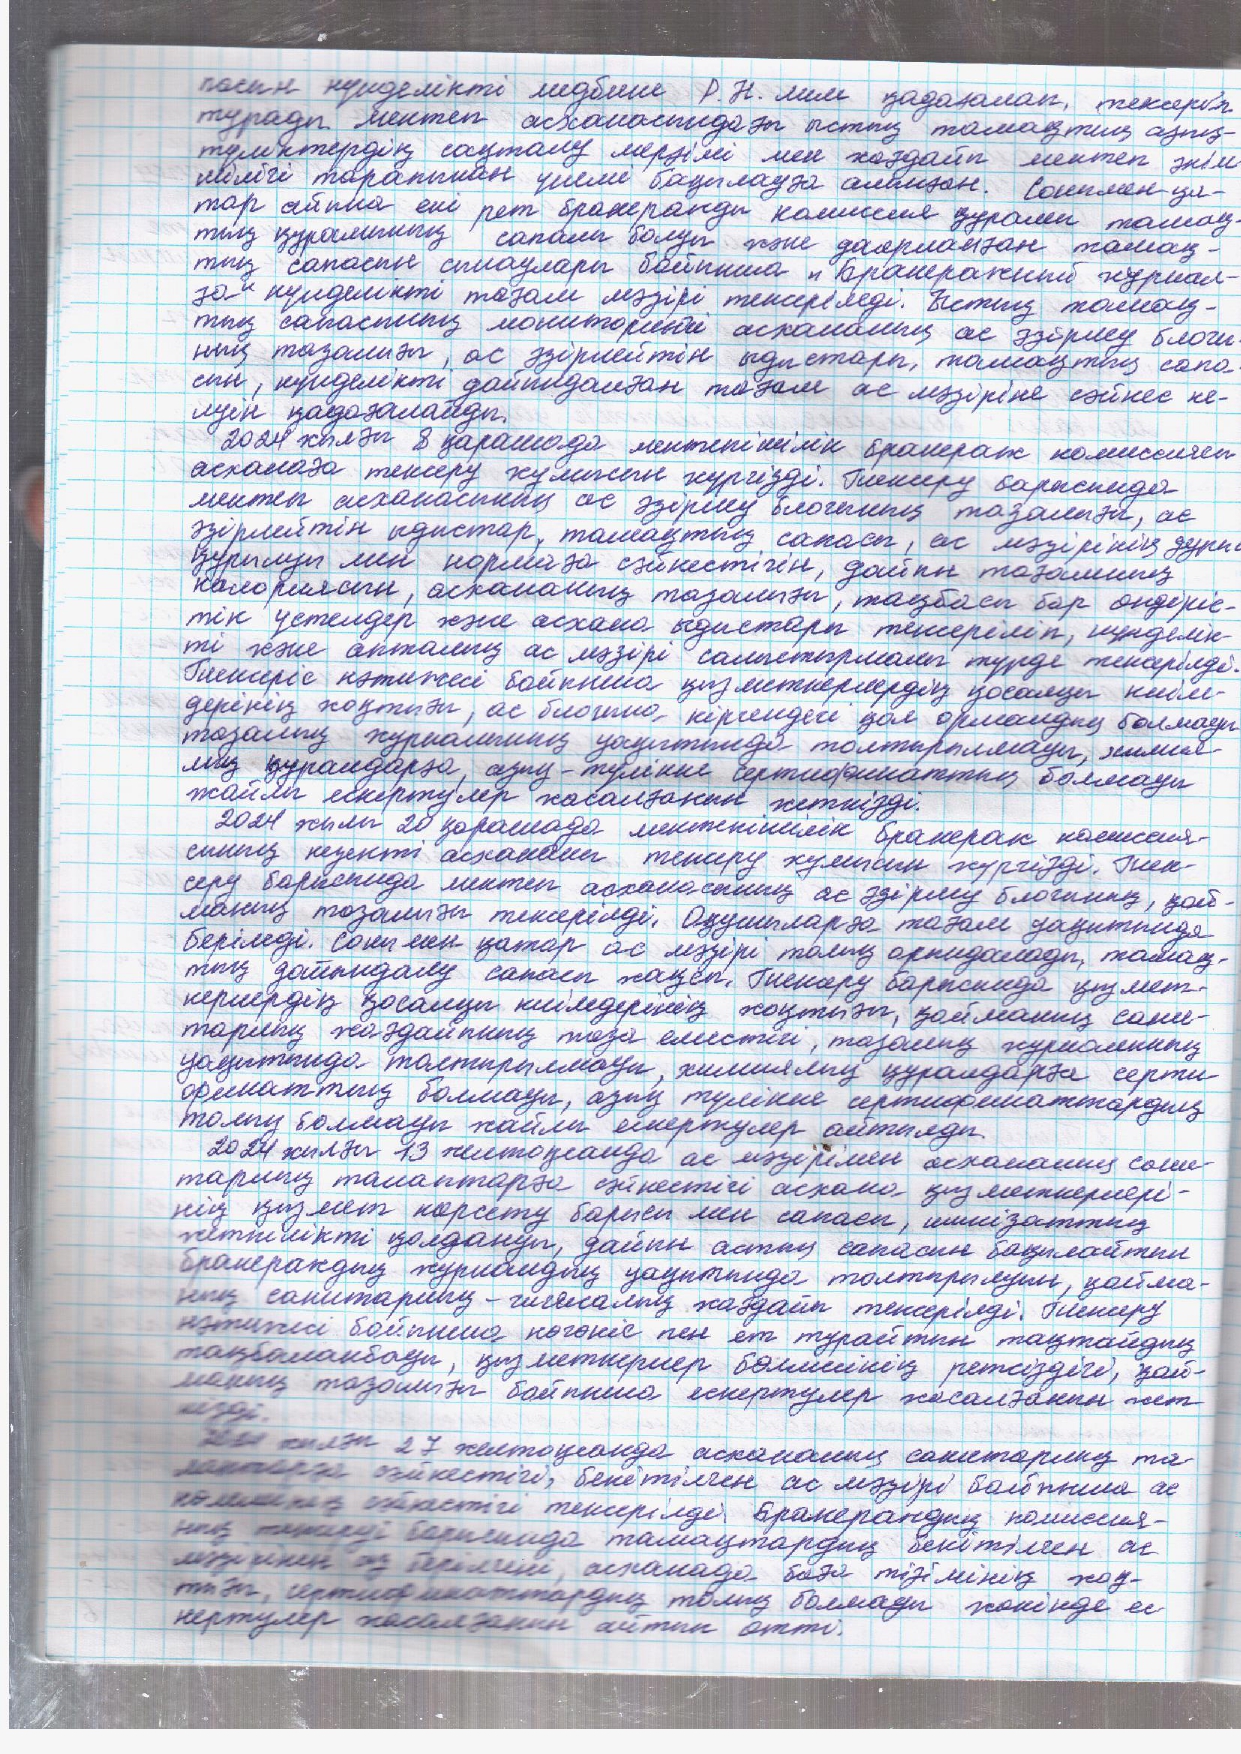 пасын күнделікті медбике Р.Н. мен қадағалап, тексеріп
тұрады. Мектеп асханасындағы ыстық тамақтың азық-
түліктердің сақталу мерзімі мен жағдайы мектеп әкім
шілігі тарапынан үнемі бақылауға алынған. Сонымен қа-
тар айына екі рет бракеражды комиссия құрамы тамақ-
тың құрамының сапалы болуы және даярланған тамақ-
тың сапасын сынаулары бойынша "Бракеражный журнал-
ға" күнделікті тағам мәзірі тексеріледі. Ыстық тамақ-
тың сапасының мониторингі асхананың ас әзірлеу блогы-
ның тазалығы, ас әзірлейтін ыдыстары, тамақтың сапа-
сын, күнделікті дайындалған тағам ас мәзіріне сәйкес ке-
луін қадағалайды.
2024 жылғы 8 қарашада мектепішілік бракераж комиссиясы
асханаға тексеру жұмысын жүргізді. Тексеру барысында
мектеп асханасының ас әзірлеу блогының тазалығы, ас
әзірлейтін ыдыстар, тамақтың сапасы, ас мәзірінің дұрыс
құрылуы мен нормаға сәйкестігін, дайын тағамның
калориясын, асхананың тазалығы, таңбасы бар өндіріс-
тік үстелдер және асхана ыдыстары тексеріліп, күнделік-
ті және апталық ас мәзірі салыстырмалы түрде тексерілді.
Тексеріс нәтижесі бойынша қызметкерлердің қосалқы киім-
дерінің жоқтығы, ас блогына кіргендегі қол орманың болмауы
тазалық журналының уақытында толтырылмауы, химия-
лық құралдарға, азық-түлікке сертификаттың болмауы
жайлы ескертулер жасалғанын жеткізді.
2024 жылы 20 қарашада мектепішілік бракераж комиссия-
сының кезекті асхананы тексеру жұмысын жүргізді. Тек-
серу барысында мектеп асханасының ас әзірлеу блогының, қой-
маның тазалығы тексерілді. Оқушыларға тағам уақытында
беріледі. Сонымен қатар ас мәзірі толық орындалады, тамақ-
тың дайындалу сапасы жақсы. Тексеру барысында қызмет-
керлердің қосалқы киімдерінің жоқтығы, қойманың сани-
тарлық жағдайының таза еместігі, тазалық журналының
уақытында толтырылмауы, химиялық құралдарға серти-
фикаттың болмауы, азық түлікке сертификаттардың
толық болмауы жайлы ескертулер айтылды.
2024 жылғы 13 желтоқсанда ас мәзірімен асхананың сани-
тарлық талаптарға сәйкестігі асхана қызметкерлері-
нің қызмет көрсету барысы мен сапасы, шикізаттың
жеткілікті қолдануы, дайын астың сапасын бақылайтын
бракераждың журналдың уақытында толтырылуын, қойма-
ның санитарлық-гигиеналық жағдайы тексерілді. Тексеру
нәтижесі бойынша көкөніс пен ет турайтын тақтайдың
таңбаланбауы, қызметкерлер бөлмесінің ретсіздігі, қой-
маның тазалығы бойынша ескертулер жасалғанын жет
кізді.
2024 жылғы 27 желтоқсанда асхананың санитарлық та-
лаптарға сәйкестігі, бекітілген ас мәзірі бойынша ас
көлемінің сәйкестігі тексерілді. Бракераждың комиссия-
ның тексеруі барысында тамақтардың бекітілген ас
мәзірімен берілгені, асханада баға тізімінің жоқ-
тығы, сертификаттардың толық болмауы жөнінде ес
кертулер жасалғанын айтып өтті.